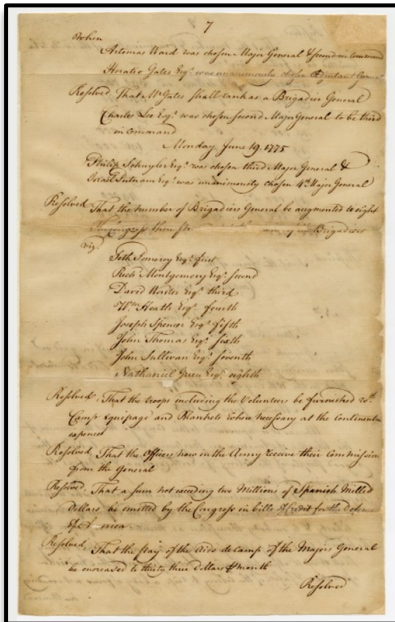 7
When
Artemas Ward was chosen Major General & second in command
Horatio Gates Esqr. was unanimously chosen Adjutant General
Resolved That Mr Gates shall rank as a Brigadier General
Charles Lee Esqr. was chosen second Major General to be third
in command
Monday June 19. 1775
Philip Schuyler Esqr. was chosen third Major General &
Israel Putnam Esqr. was unanimously chosen 4th Major General
Resolved That the number of Brigadiers General be augmented to eight
Brigadiers
viz.
Seth Pomeroy Esqr. first
Richd Montgomery Esqr. second
David Wooster Esqr. third
Wm Heath Esqr. fourth
Joseph Spencer Esqr. fifth
John Thomas Esqr. sixth
John Sullivan Esqr. seventh
Nathaniel Green Esqr. eighth
Resolved That the troops including the Volunteers be furnished wt.
Camp Equipage and Blankets when necessary at the Continental
expence
Resolved That the Officers now in the Army receive their Commission
from the General
Resolved That a sum not exceeding two Millions of Spanish Milled
Dollars be emitted by the Congress in bills of Credit for the defence
of
Resolved That the pay of the aids de camp of the Majors General
be increased to thirty three Dollars month
Resolved